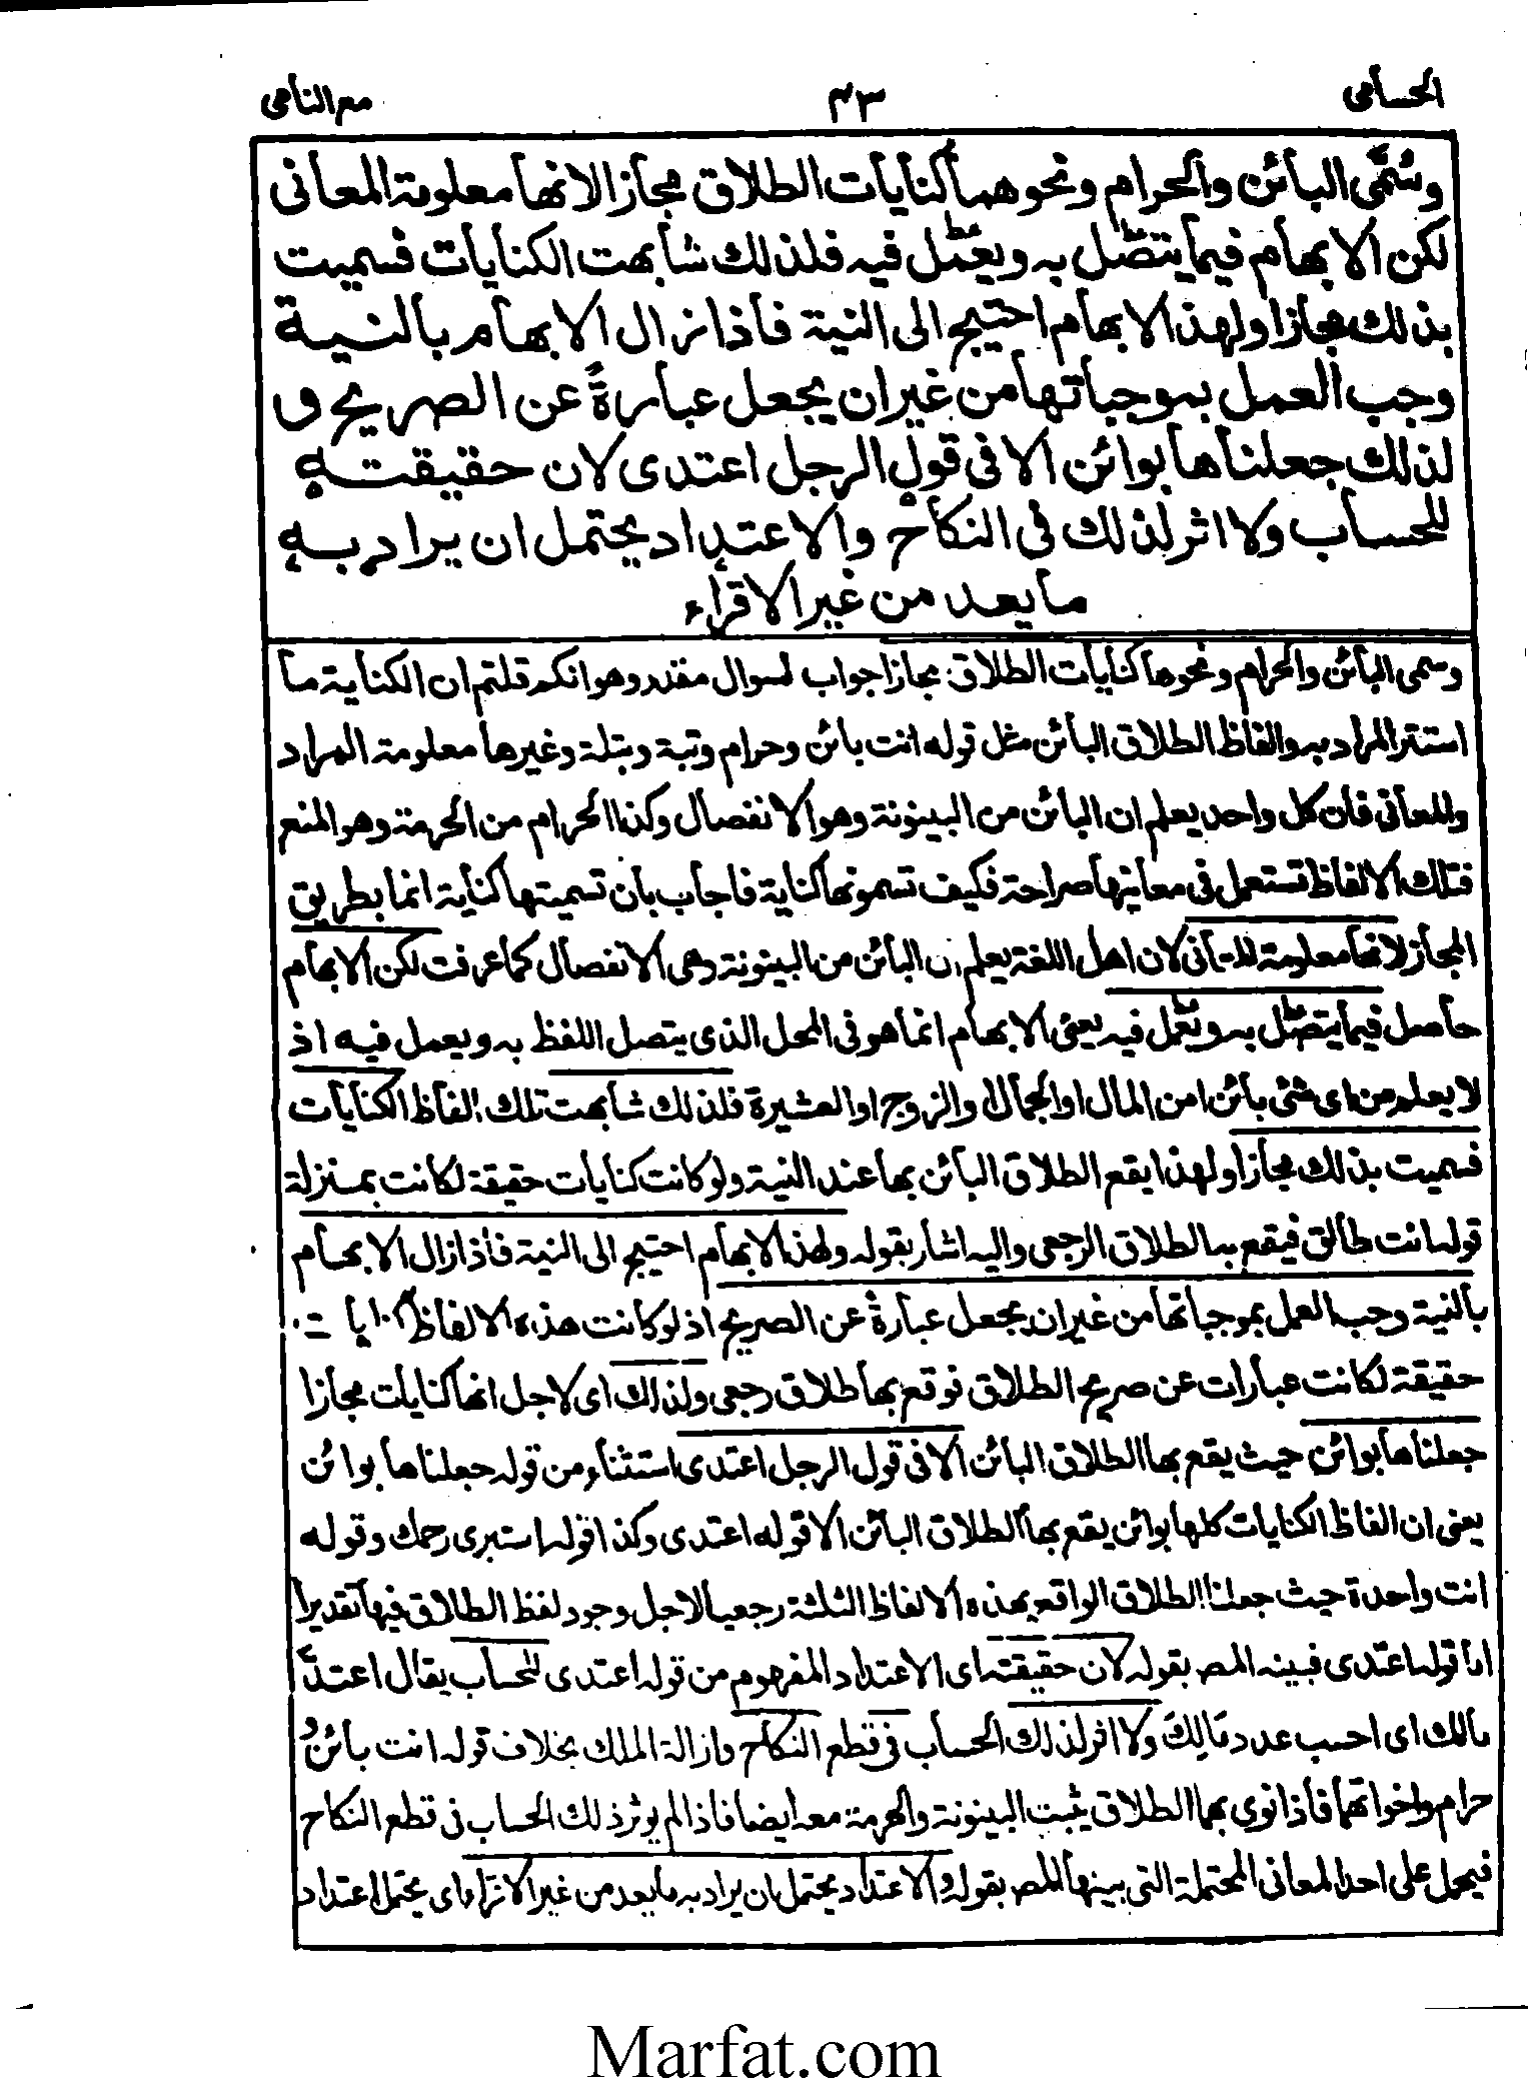 الحسامى ٤٣ مع النامى
وسُمِّى البائن والحرام ونحوهما كنايات الطلاق مجازا لانها معلومة المعانى
لكن الابهام فيما يتصل به ويعمل فيه فلذلك شابهت الكنايات فسميت
بذلك مجازا ولهذا الابهام احتيج الى النية فاذا زال الابهام بالنية
وجب العمل بموجباتها من غير ان يجعل عبارةً عن الصريح و
لذلك جعلناها بوائن الا فى قول الرجل اعتدى لان حقيقته
للحساب ولا اثر لذلك فى النكاح والاعتداد يحتمل ان يراد به
ما يعد من غير الاقراء
وسمى البائن والحرام ونحوها كنايات الطلاق مجازا جواب لسوال مقدر وهو انكم قلتم ان الكناية ما
استتر المراد به والفاظ الطلاق البائن مثل قوله انت بائن وحرام وتبة وبتلة وغيرها معلومة المراد
والمعانى فان كل واحد يعلم ان البائن من البينونة وهو الانفصال وكذا الحرام من الحرمة وهو المنع
فتلك الالفاظ تستعمل فى معانيها صراحة فكيف تسمونها كناية فاجاب بان تسميتها كناية انما بطريق
المجاز لانها معلومة المعانى لان اهل اللغة يعلم ان البائن من البينونة وهى الانفصال كما عرفت لكن الابهام
حاصل فيما يتصل به ويعمل فيه يعنى الابهام انما هو فى المحل الذى يتصل اللفظ به ويعمل فيه اذ
لا يعلم من اى شئ بائن امن المال او الجمال او الزوج او العشيرة فلذلك شابهت تلك الفاظ الكنايات
فسميت بذلك مجازا ولهذا يقع الطلاق البائن بها عند النية ولو كانت كنايات حقيقة لكانت بمنزلة
قوله انت طالق فيقع به الطلاق الرجعى واليه اشار بقوله ولهذا الابهام احتيج الى النية فاذا زال الابهام
بالنية وجب العمل بموجباتها من غير ان يجعل عبارةً عن الصريح اذ لو كانت هذه الالفاظ
حقيقة لكانت عبارات عن صريح الطلاق فوقع بها طلاق رجعى ولذلك اى لاجل انها كنايات مجازا
جعلناها بوائن حيث يقع بها الطلاق البائن الا فى قول الرجل اعتدى استثناء من قوله جعلناها بوائن
يعنى ان الفاظ الكنايات كلها بوائن يقع بها الطلاق البائن الا قوله اعتدى وكذا قوله استبرى رحمك وقوله
انت واحدة حيث جعلنا الطلاق الواقع بهذه الالفاظ الثلثة رجعيا لاجل وجود لفظ الطلاق فيها تقديرا
اما قوله اعتدى فبينه المص بقوله لان حقيقته اى الاعتداد المفهوم من قوله اعتدى للحساب يقال اعتدّ
مالك اى احسب عدد مالك ولا اثر لذلك الحساب فى قطع النكاح وازالة الملك بخلاف قوله انت بائنٌ
حرام واخواتهما فاذا نوى بهما الطلاق يثبت البينونة والحرمة معه ايضا فاذا لم يوثر ذلك الحساب فى قطع النكاح
فيحمل على احد المعانى المحتملة التى بينها المص بقوله والاعتداد يحتمل ان يراد به ما يعد من غير الاقراء اى يحتمل اعتداد
Marfat.com